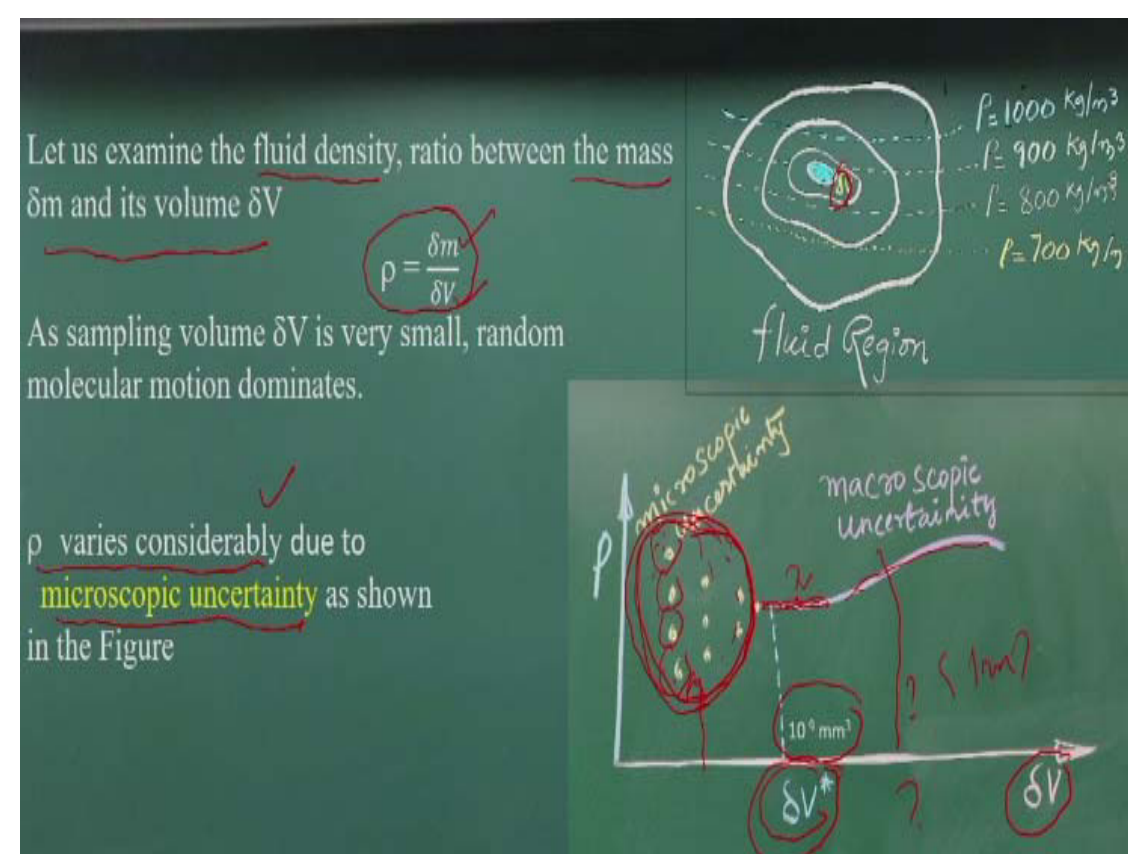 Let us examine the fluid density, ratio between the mass
δm and its volume δV
ρ = δm / δV
As sampling volume δV is very small, random
molecular motion dominates.
ρ varies considerably due to
microscopic uncertainty as shown
in the Figure
ρ = 1000 kg/m³
ρ = 900 kg/m³
ρ = 800 kg/m³
ρ = 700 kg/m
fluid Region
microscopic
uncertainty
macroscopic
uncertainity
ρ
?
10⁹ mm³
δV*
?
δV